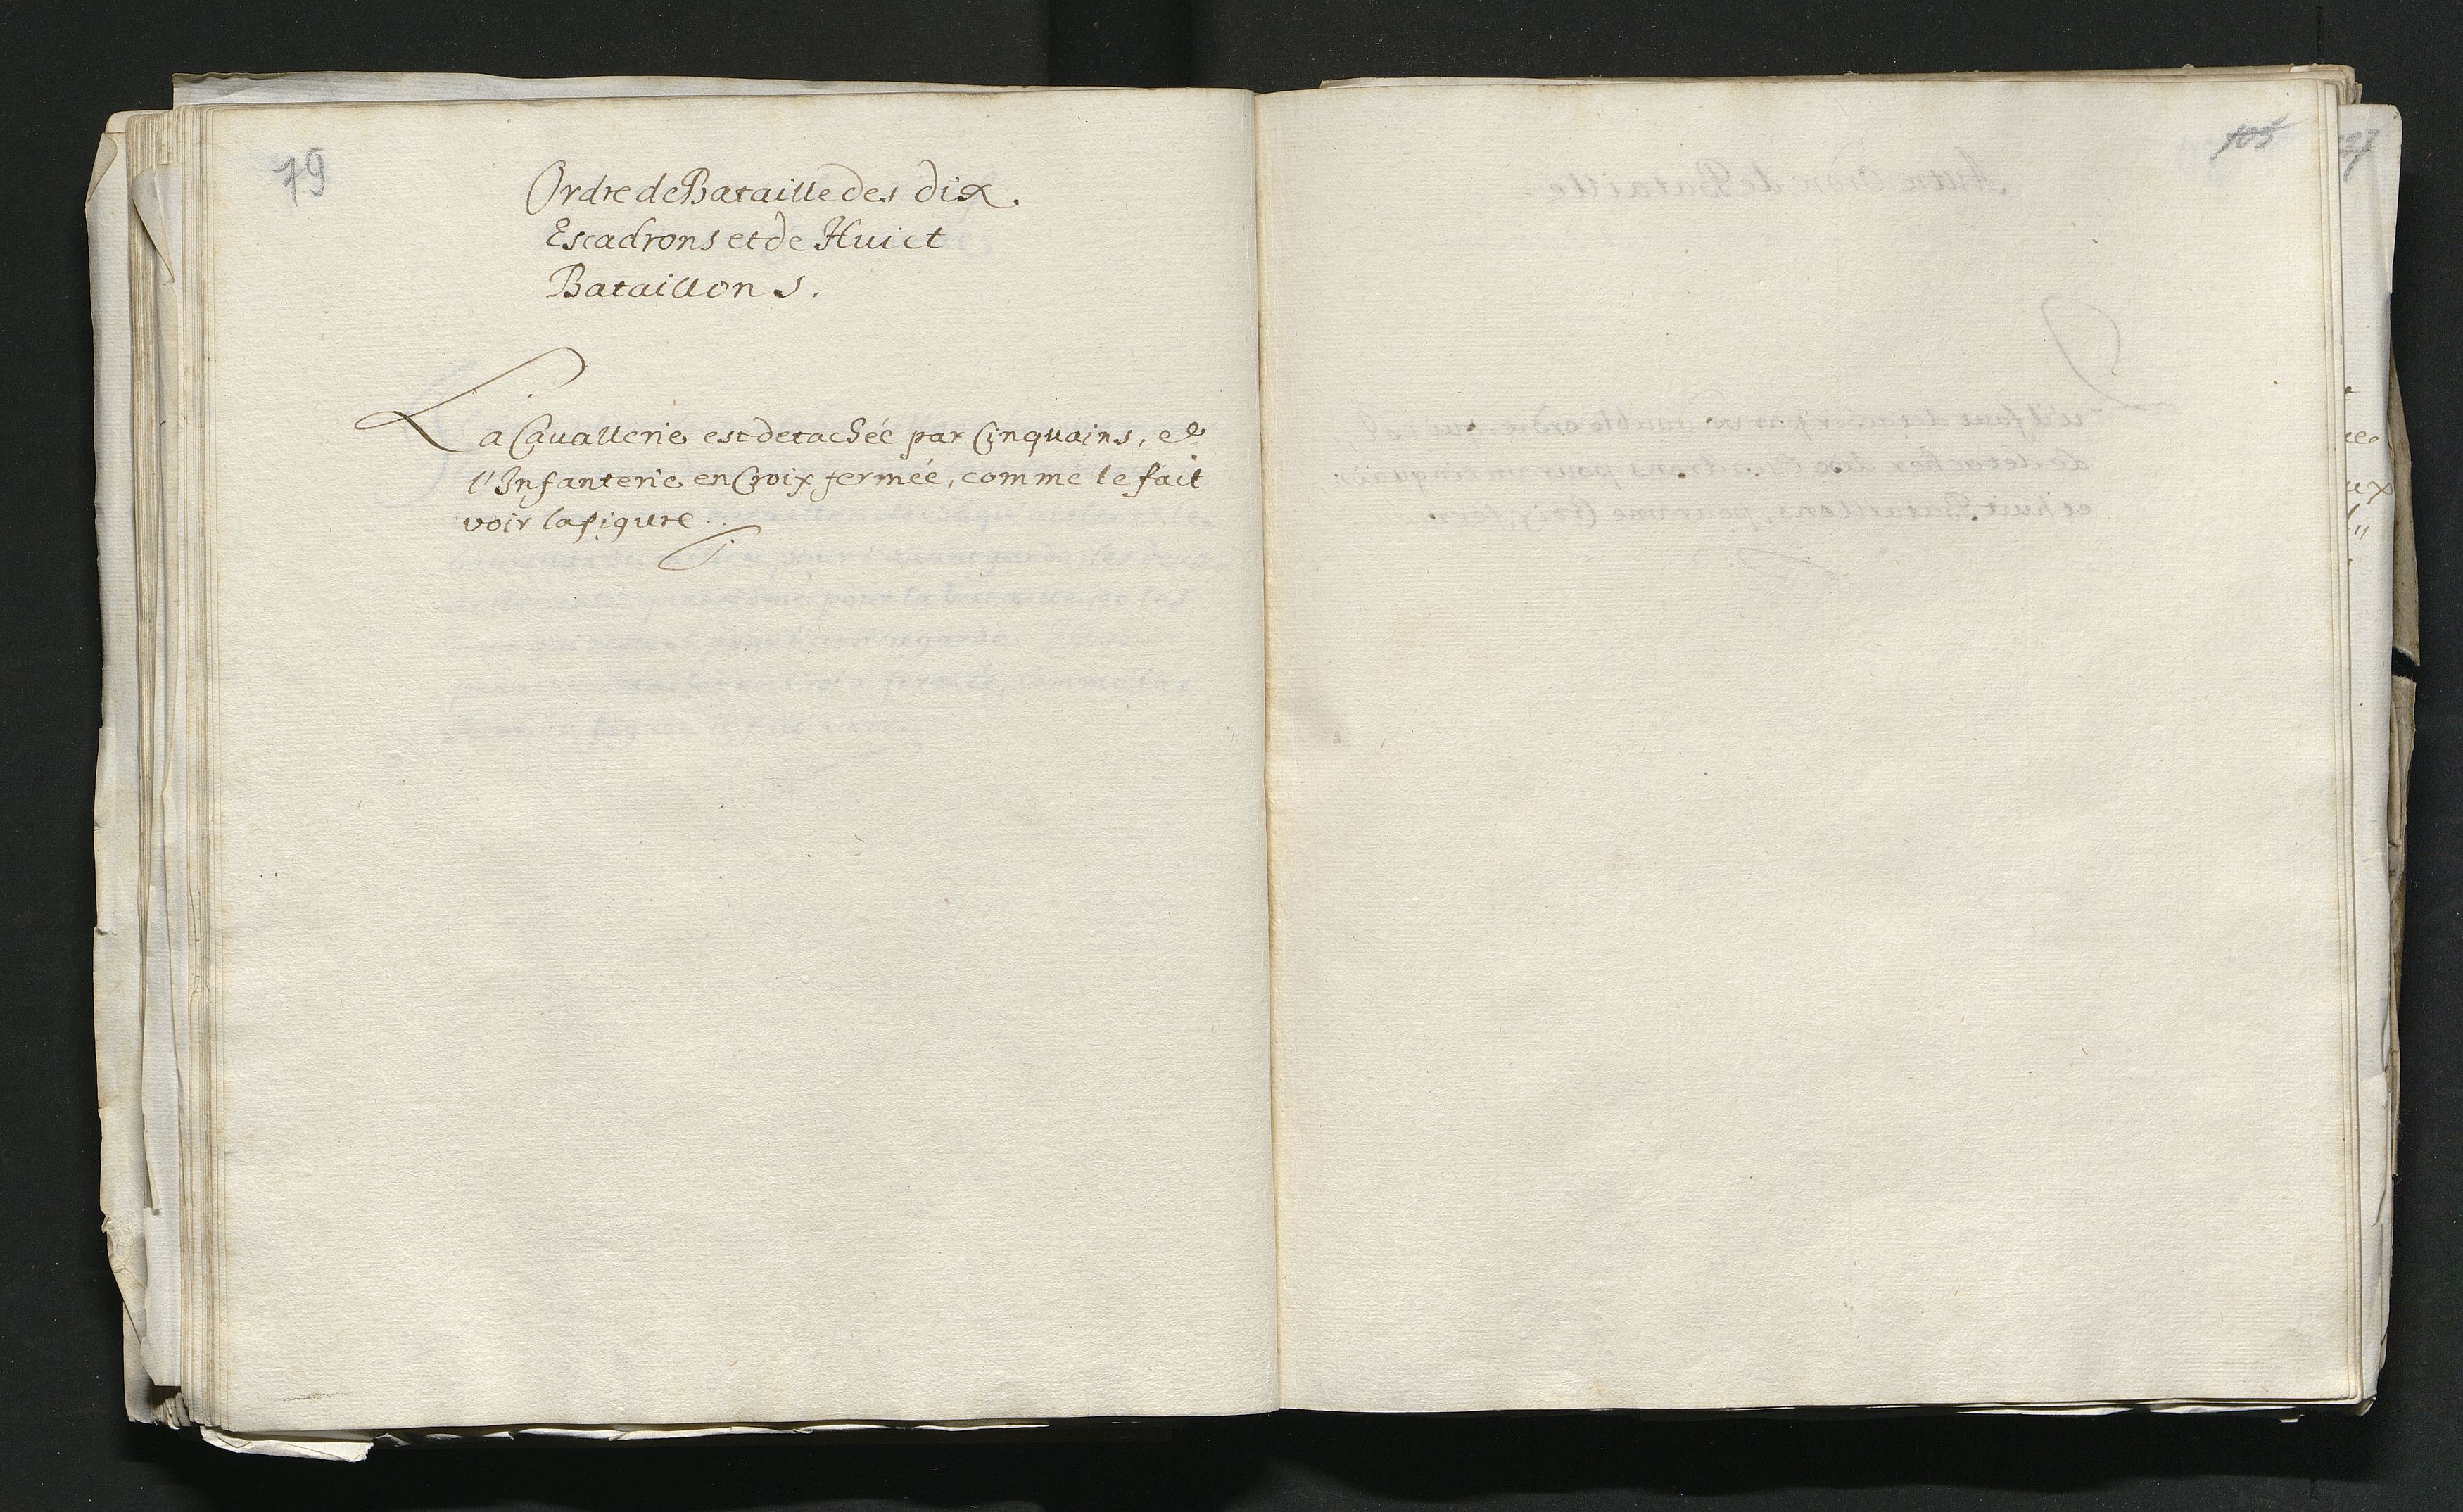 79
Ordre de Bataille des dix.
Escadrons et de Huict
Bataillons.
La Cauallerie est detachée par Cinquains, et
l'Infanterie en Croix fermée, comme le fait
voir la figure.
105